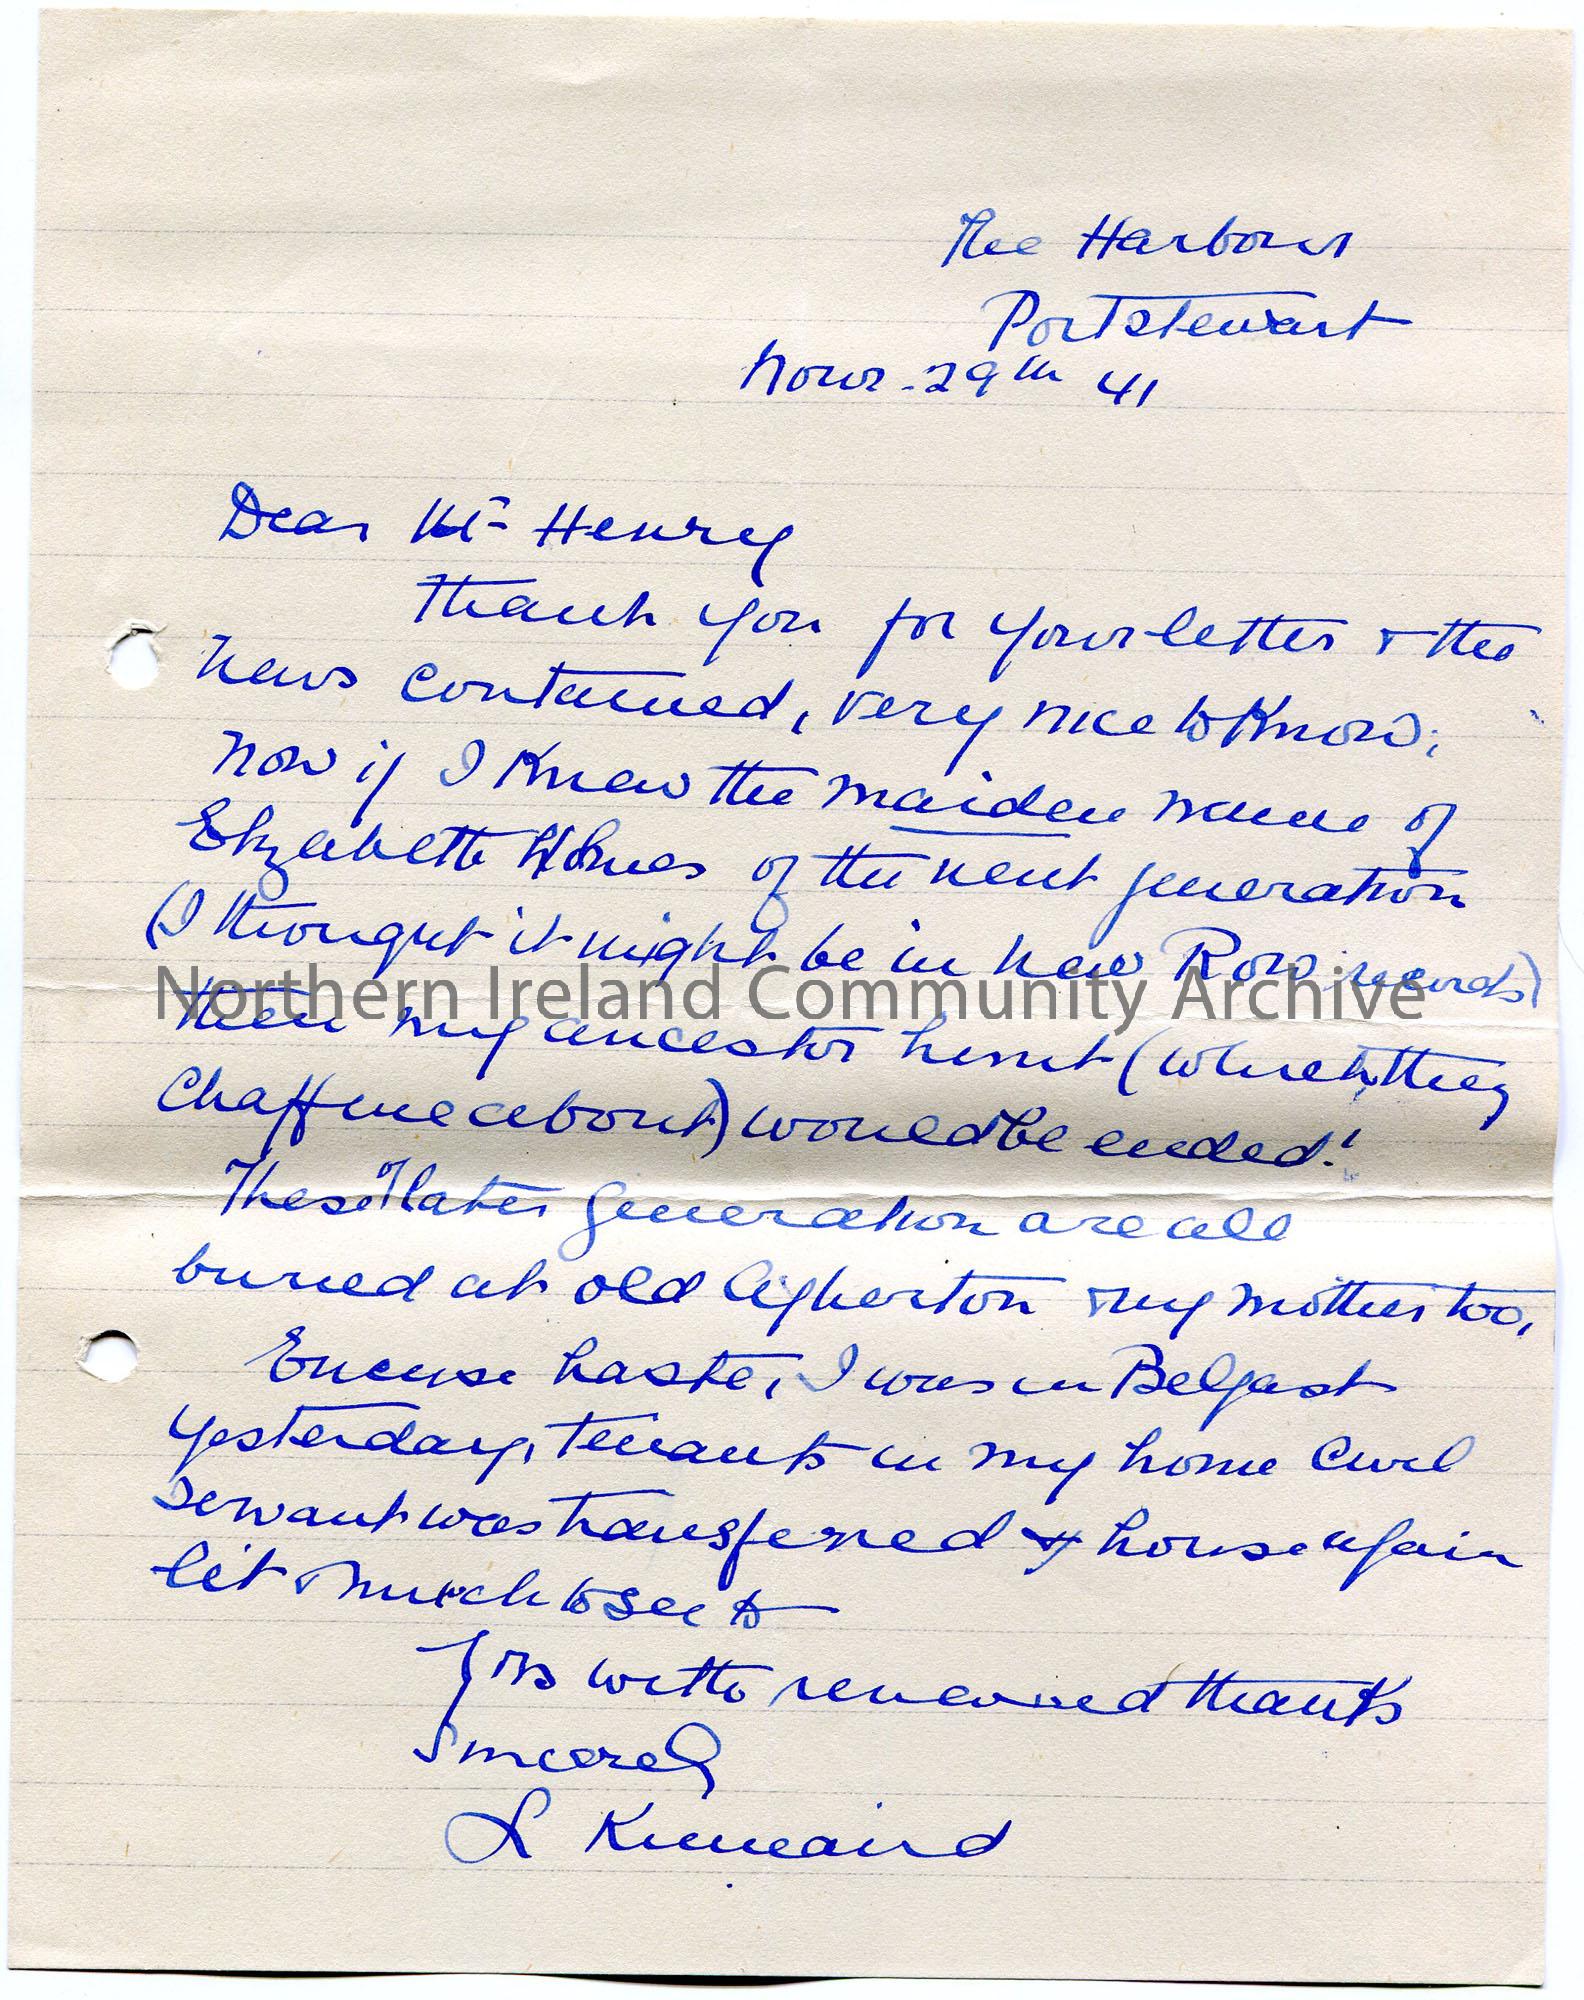 The Harbour
Portstewart
Novr. 29th 41
Dear Mr Henry
Thank you for your letter & the
news contained, very nice to know;
now if I knew the maiden name of
Elizabeth Holmes of the next generation
(I thought it might be in New Row records)
Northern Ireland Community Archive
then my ancestor hunt (which they
chaff me about) would be ended!
These of later generation are all
buried at old Agherton & my mother too,
Excuse haste, I was in Belfast
yesterday, tenants in my home Civil
Servant was transferred & house again
let & much to see to
Yrs with renewed thanks
Sincerely
L Kinnaird